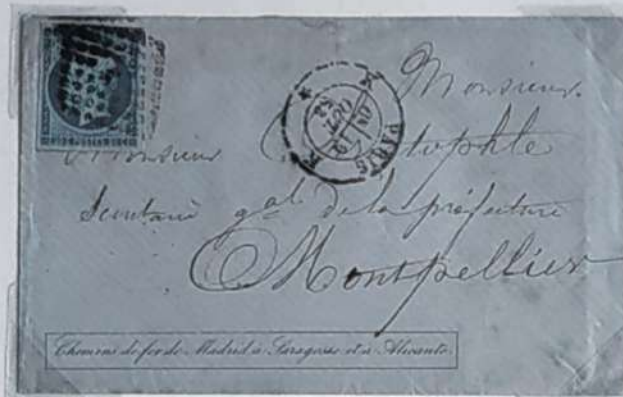 Monsieur
Monsieur
Secrétaire gal de la préfecture
Montpellier
PARIS
Chemins de fer de Madrid à Saragosse et à Alicante.